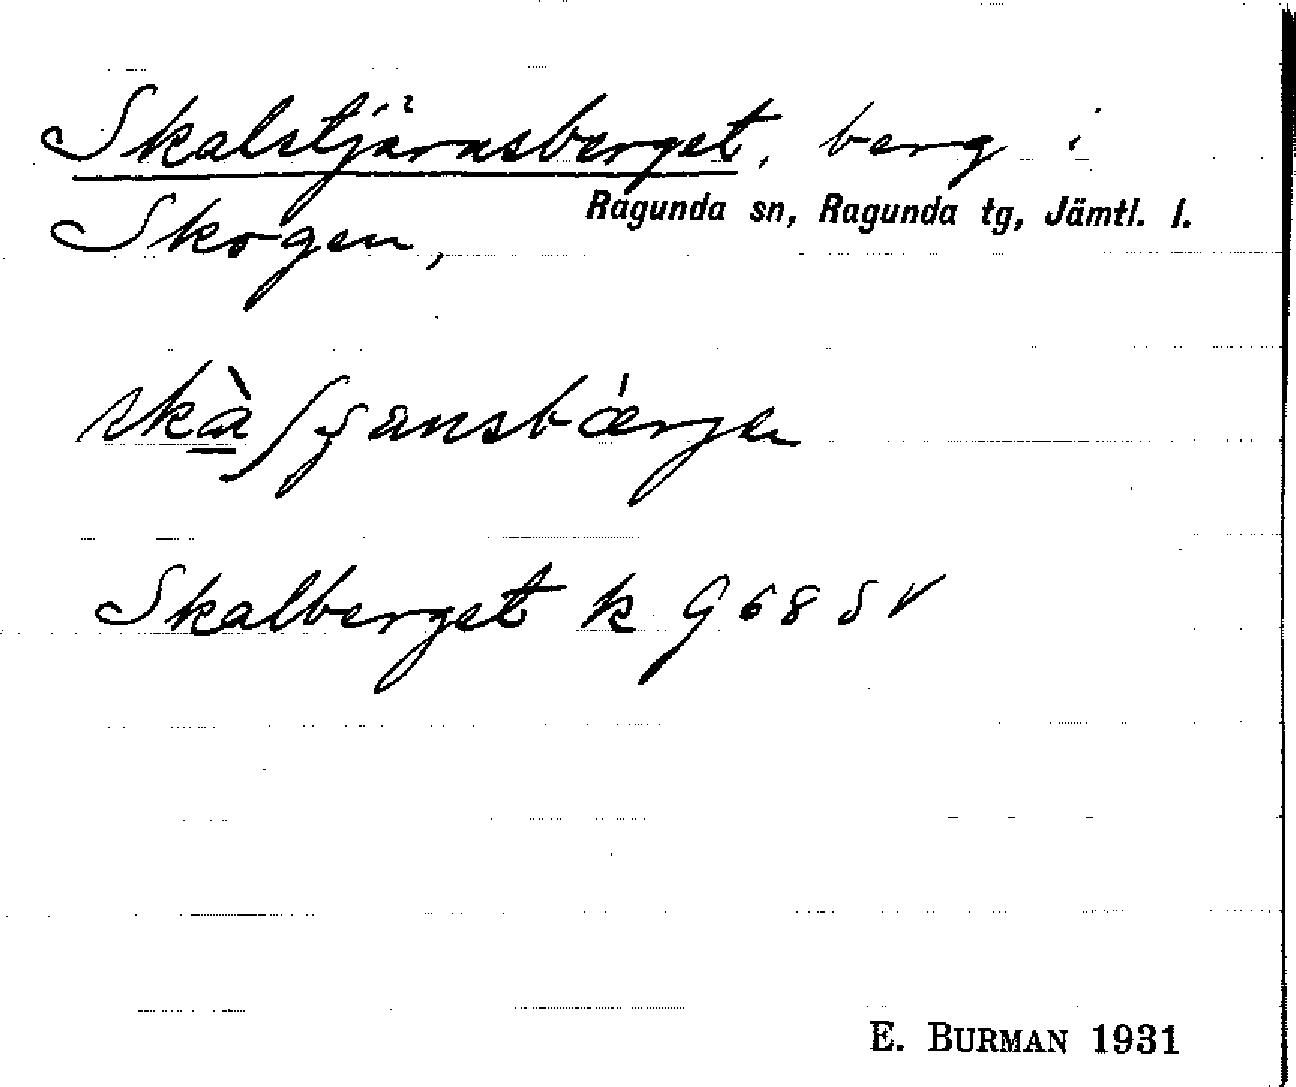 Skalstjärnsberget, berg i
Ragunda sn, Ragunda tg, Jämtl. l.
Skogen,
Skalberget k G 68 SV
E. BURMAN 1931